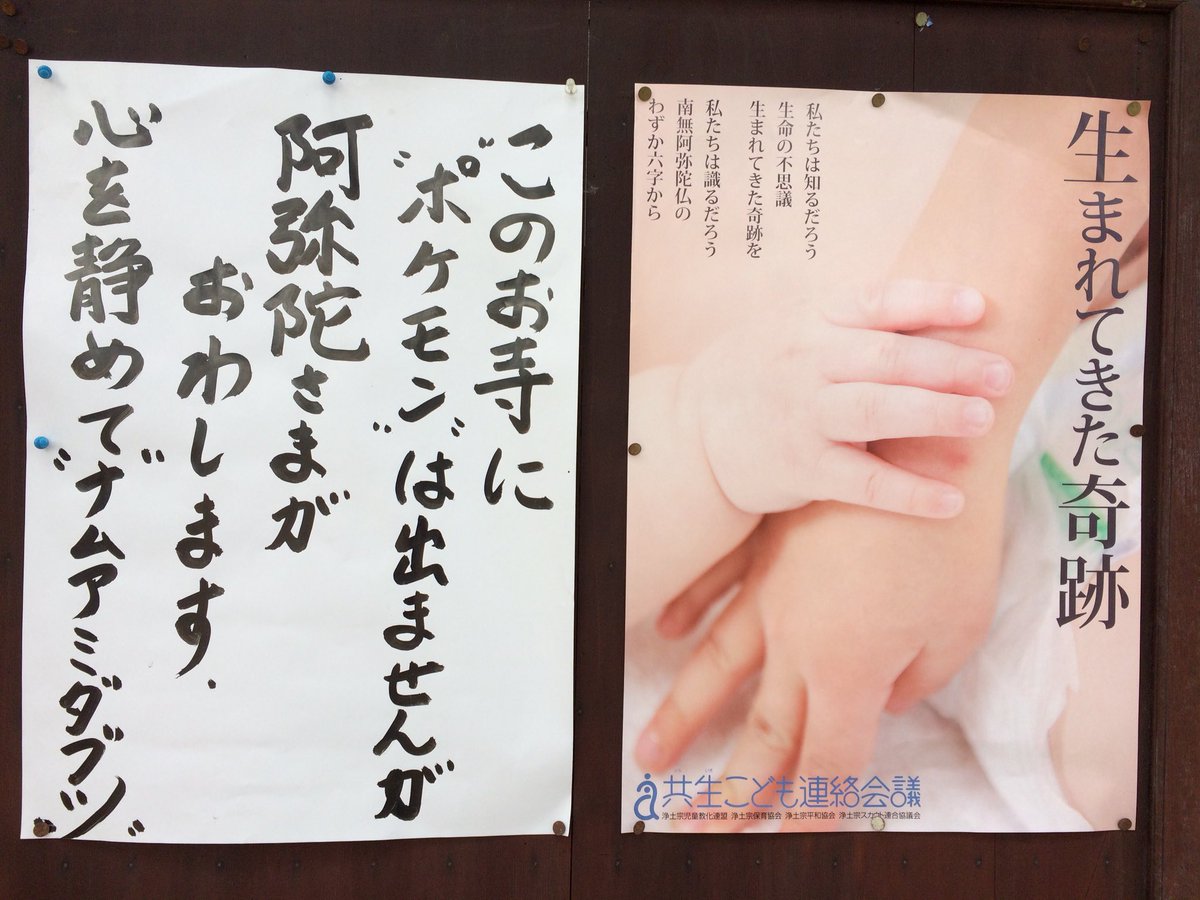 このお寺に
"ポケモン"は出ませんが
阿弥陀さまが
おわします.
心を静めて"ナムアミダブツ"
生まれてきた奇跡
私たちは知るだろう
生命の不思議
生まれてきた奇跡を
私たちは識るだろう
南無阿弥陀仏の
わずか六字から
共生こども連絡会議
浄土宗児童教化連盟 浄土宗保育協会 浄土宗平和協会 浄土宗スカウト連合協議会